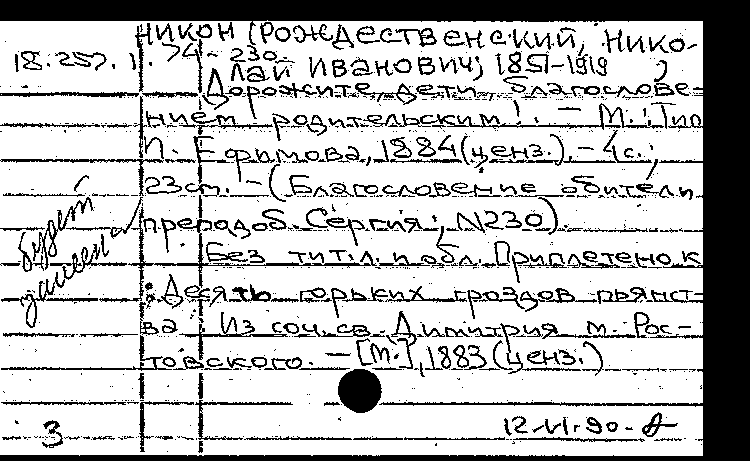 НИКОН (РОЖДЕСТВЕНСКИЙ, НИКО-
18.257.1.74-230
ЛАЙ ИВАНОВИЧ; 1851-1919)
Дорожите, дети, благослове-
нием родительским!. - М.: Тип.
И. Ефимова, 1884 (ценз.). - 4с.;
23см. - (Благословение обители
преподоб. Сергия; N230).
Без тит.л. и обл. Приплетено к
: Десять горьких гроздов пьянст-
ва: Из соч. св. Димитрия м. Рос-
товского. - [М.], 1883 (ценз.)
будет
3
12.VI.90.